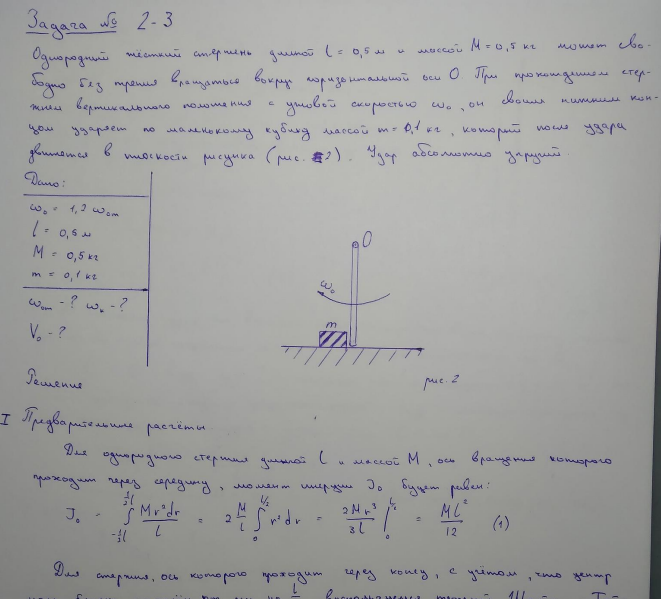 Задача № 2-3
Однородный жёсткий стержень длиной l = 0,5 м и массой M = 0,5 кг может сво-
бодно без трения вращаться вокруг горизонтальной оси O При прохождении стер-
жнем вертикального положения с угловой скоростью ω₀, он своим нижним кон-
цом ударяет по маленькому кубику массой m = 0,1 кг, который после удара
движется в плоскости рисунка (рис. 2). Удар абсолютно упругий.
Дано:
ω₀ = 1,2 ω₀m
l = 0,5 м
M = 0,5 кг
m = 0,1 кг
ω₀m - ? ωк - ?
V₀ - ?
O
ω₀
m
рис. 2
Решение
I Предварительные расчёты
Для однородного стержня длиной l и массой M, ось вращения которого
проходит через середину, момент инерции J₀ будет равен:
J₀ = ∫_{-½l}^{½l} Mr²dr/l = 2 M/l ∫_0^{l/2} r²dr = 2Mr³/3l |_0^{l/2} = Ml²/12 (1)
Для стержня, ось которого проходит через конец, с учётом, что центр